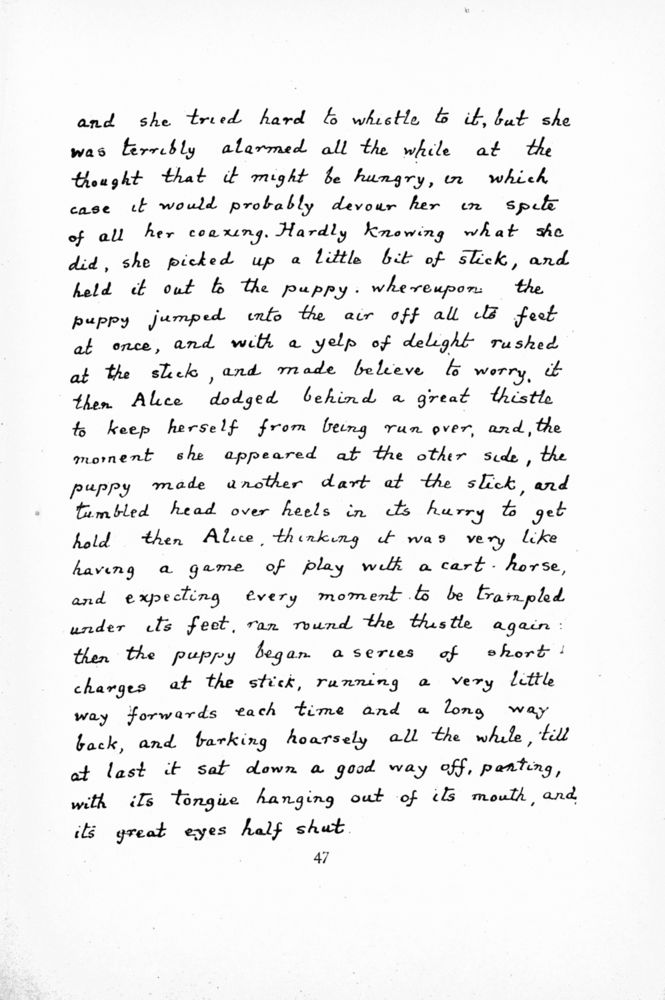 and she tried hard to whistle to it, but she
was terribly alarmed all the while at the
thought that it might be hungry, in which
case it would probably devour her in spite
of all her coaxing. Hardly knowing what she
did, she picked up a little bit of stick, and
held it out to the puppy. whereupon the
puppy jumped into the air off all its feet
at once, and with a yelp of delight rushed
at the stick, and made believe to worry it
then Alice dodged behind a great thistle
to keep herself from being run over, and, the
moment she appeared at the other side, the
puppy made another dart at the stick, and
tumbled head over heels in its hurry to get
hold then Alice, thinking it was very like
having a game of play with a cart-horse,
and expecting every moment to be trampled
under its feet, ran round the thistle again:
then the puppy began a series of short
charges at the stick, running a very little
way forwards each time and a long way
back, and barking hoarsely all the while, till
at last it sat down a good way off, panting,
with its tongue hanging out of its mouth, and
its great eyes half shut.
47